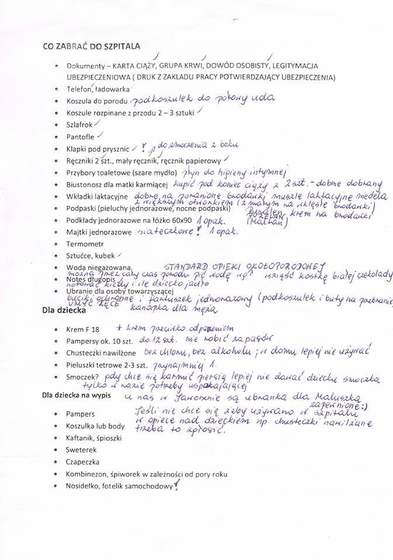 CO ZABRAĆ DO SZPITALA
Dokumenty – KARTA CIĄŻY, GRUPA KRWI, DOWÓD OSOBISTY, LEGITYMACJA
UBEZPIECZENIOWA ( DRUK Z ZAKŁADU PRACY POTWIERDZAJĄCY UBEZPIECZENIA)
Telefon, ładowarka
Koszula do porodu podkoszulek do połowy uda
Koszule rozpinane z przodu 2 – 3 sztuki
Szlafrok
Pantofle
Klapki pod prysznic ? do z boku
Ręczniki 2 szt., mały ręcznik, ręcznik papierowy
Przybory toaletowe (szare mydło) płyn do higieny intymnej
Biustonosz dla matki karmiącej kupić pod koniec ciąży x 2 szt. - dobrze dobrany
Wkładki laktacyjne dobre na poranione brodawki muszle laktacyjne medela
Podpaski (pieluchy jednorazowe, nocne podpaski)
krem na brodawki
Podkłady jednorazowe na łóżko 60x90 1 opak. (Maltan)
Majtki jednorazowe siateczkowe! 1 opak.
Termometr
Sztućce, kubek
Woda niegazowana, STANDARD OPIEKI OKOŁOPORODOWEJ
można przez cały czas porodu pić wodę wziąść kostkę białej czekolady
Notes długopis
notować kiedy i ile dziecko jadło
Ubranie dla osoby towarzyszącej
i fartuszek jednorazowy (podkoszulek i buty na przebranie)
UMYĆ RĘCE kanapka dla męża
Dla dziecka
Krem F 18 + krem przeciwko odparzeniom
Pampersy ok. 10 szt. do 12 szt. nie robić zapasów
Chusteczki nawilżone bez chloru, bez alkoholu, w domu lepiej nie używać
Pieluszki tetrowe 2-3 szt. przynajmniej 1.
Smoczek? gdy chce się karmić piersią lepiej nie dawać dziecku smoczka
tylko w razie potrzeby uspakajający
Dla dziecka na wypis u nas w są ubranka dla Maluszka
zapewnione:)
Pampers Jeśli nie chce się żeby używano w szpitalu
Koszulka lub body w opiece nad dzieckiem np. chusteczki nawilżane
Kaftanik, śpioszki trzeba to zgłosić.
Sweterek
Czapeczka
Kombinezon, śpiworek w zależności od pory roku
Nosidełko, fotelik samochodowy !